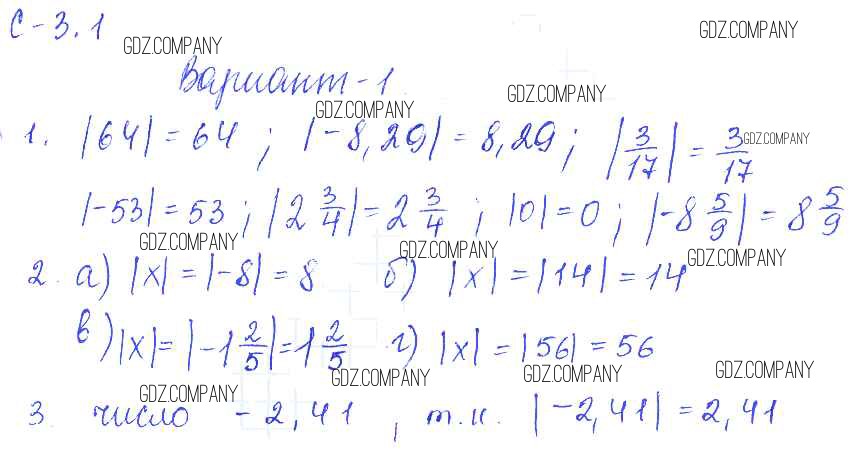 С-3.1
GDZ.COMPANY GDZ.COMPANY
Вариант-1
GDZ.COMPANY GDZ.COMPANY
1. |64| = 64 ; |-8,29| = 8,29 ; |3/17| = 3/17 GDZ.COMPANY
|-53| = 53 ; |2 3/4| = 2 3/4 ; |0| = 0 ; |-8 5/9| = 8 5/9
GDZ.COMPANY GDZ.COMPANY GDZ.COMPANY
2. а) |x| = |-8| = 8 б) |x| = |14| = 14
в) |x| = |-1 2/5| = 1 2/5 г) |x| = |56| = 56
GDZ.COMPANY GDZ.COMPANY GDZ.COMPANY GDZ.COMPANY
3. число -2,41 , т.к. |-2,41| = 2,41